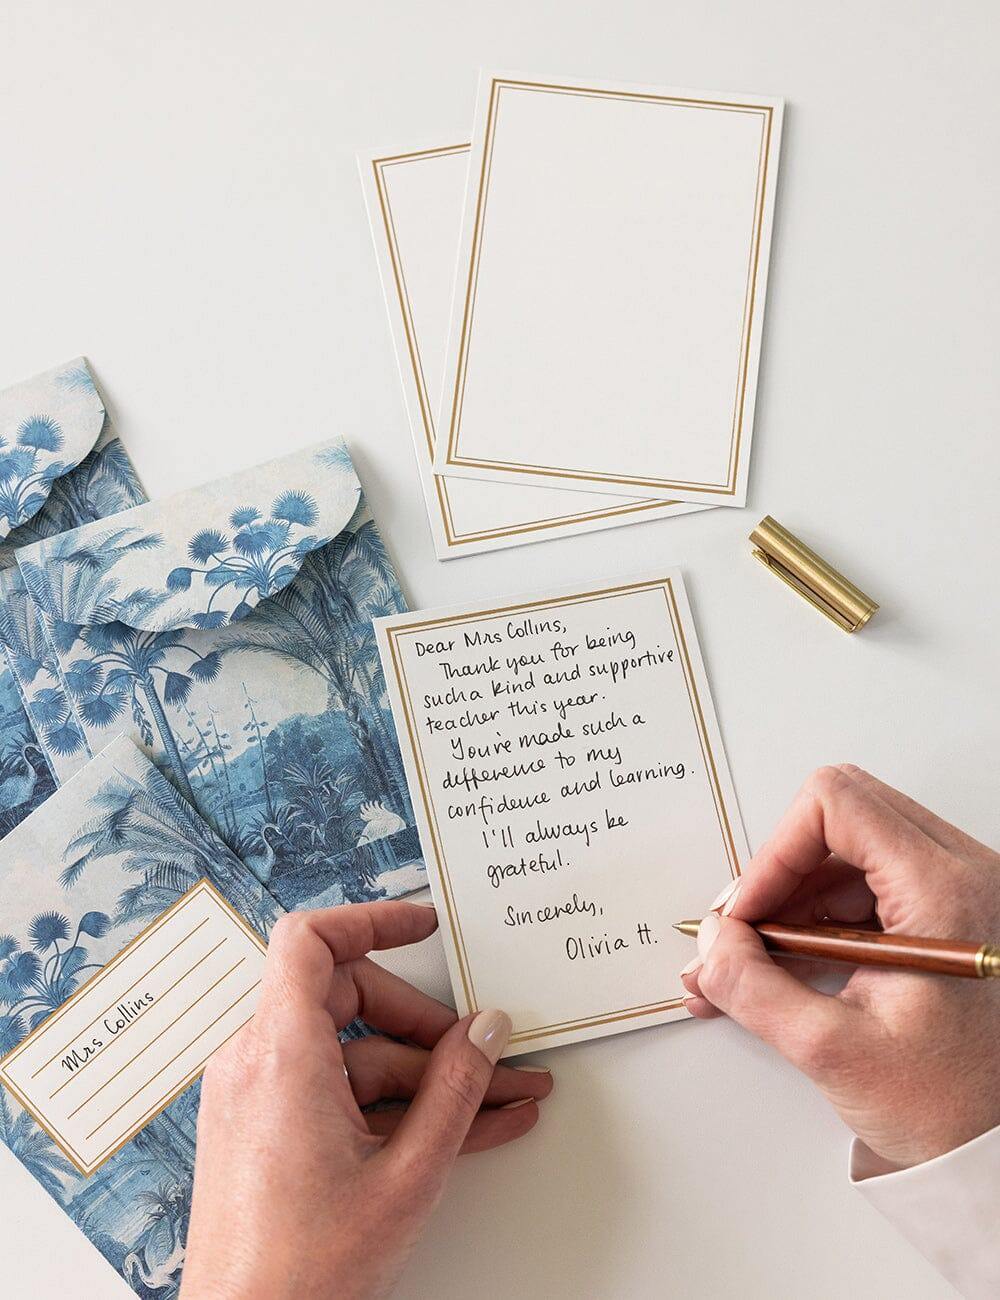 Dear Mrs Collins,
Thank you for being
such a kind and supportive
teacher this year.
You've made such a
difference to my
confidence and learning.
I'll always be
grateful.
Sincerely,
Olivia H.
Mrs Collins